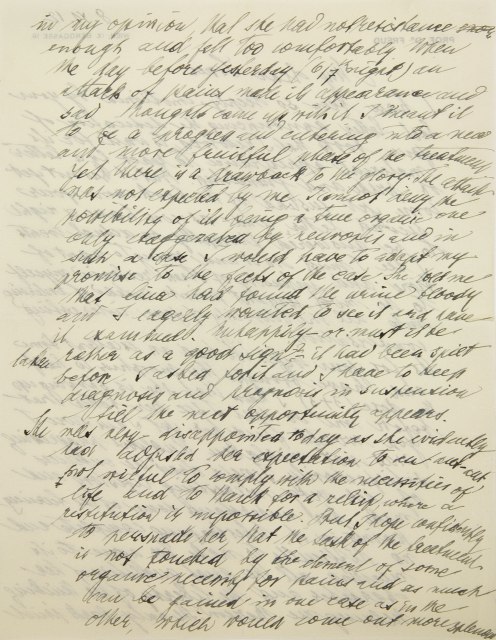 in my opinion that she had not resistance
enough and felt too comfortably. When
the day before yesterday (6/7 night) an
attack of pains made its appearance and
sad thoughts came up with it I meant it
to be a progress and entering into a new
and more fruitful phase of the treatment.
Yet there is a drawback to the story, the attack
was not expected by me. I cannot deny the
possibility of its being a true organic one
only exaggerated by neurosis and in
such a case I would have to adapt my
promise to the facts of the case. She told me
that had found the urine bloody
and I eagerly wanted to see it and have
it examined. Unhappily or must it be
taken rather as a good sign? it had been spilt
before I asked for it and I have to keep
diagnosis and prognosis in suspension
till the next opportunity appears.
She was very disappointed today as she evidently
had adjusted her expectation to an
not to comply with the necessities of
life and to thank for a relief, where a
restitution is impossible. But I hope confidently
to persuade her that the task of the treatment
is not touched by the element of some
organic necessity for pains and as much
can be gained in one case as in the
other, which would come out more splendid